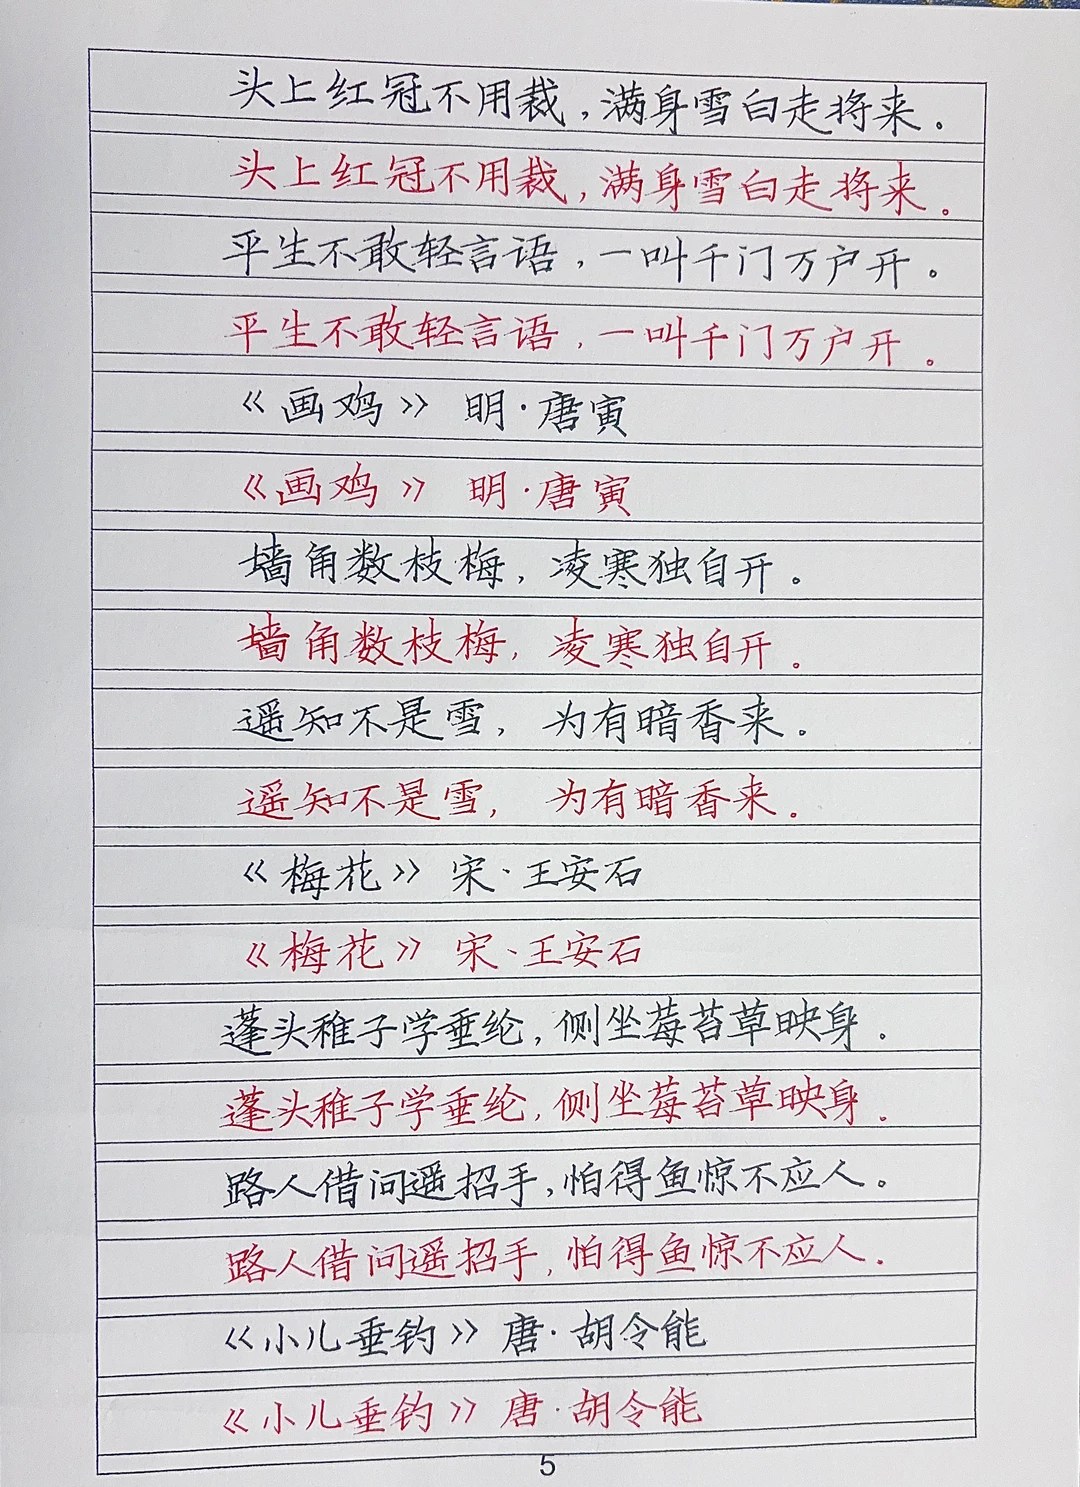 头上红冠不用裁，满身雪白走将来。
头上红冠不用裁，满身雪白走将来。
平生不敢轻言语，一叫千门万户开。
平生不敢轻言语，一叫千门万户开。
《画鸡》 明·唐寅
《画鸡》 明·唐寅
墙角数枝梅，凌寒独自开。
墙角数枝梅，凌寒独自开。
遥知不是雪，为有暗香来。
遥知不是雪，为有暗香来。
《梅花》 宋·王安石
《梅花》 宋、王安石
蓬头稚子学垂纶，侧坐莓苔草映身。
蓬头稚子学垂纶，侧坐莓苔草映身。
路人借问遥招手，怕得鱼惊不应人。
路人借问遥招手，怕得鱼惊不应人。
《小儿垂钓》 唐·胡令能
《小儿垂钓》 唐·胡令能
5